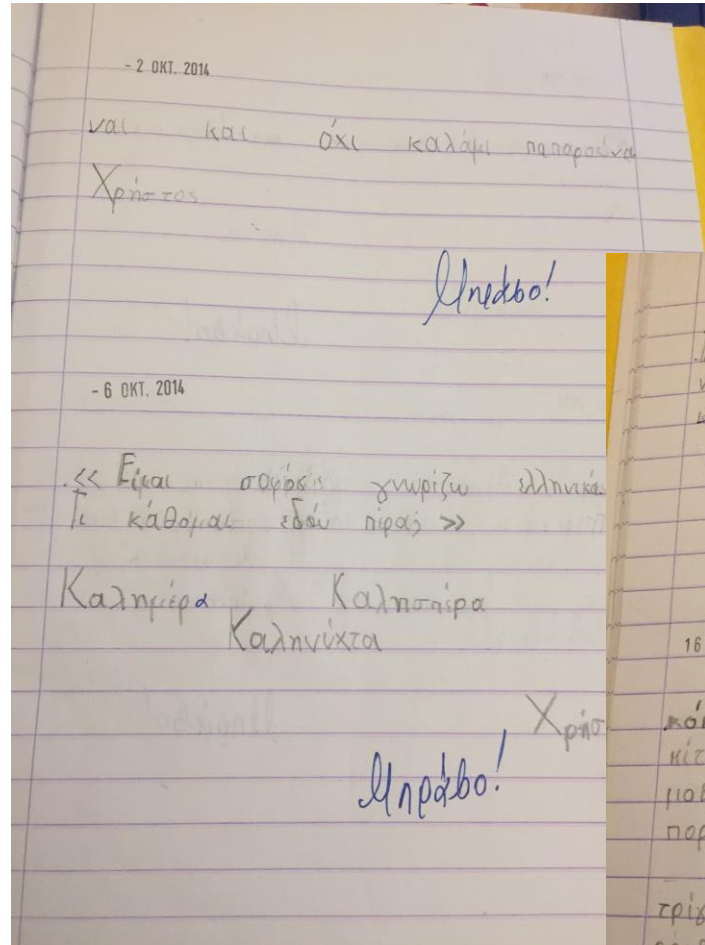 - 2 ΟΚΤ. 2014
ναι και όχι καλάμι παπαρούνα
Χρήστος
Μπράβο!
- 6 ΟΚΤ. 2014
<< Είμαι γνωρίζω ελληνικά.
Τι κάθομαι εδού πέρας >>
Καλημέρα Καλησπέρα
Καληνύχτα
Χρήσ
Μπράβο!
16
τρίγ